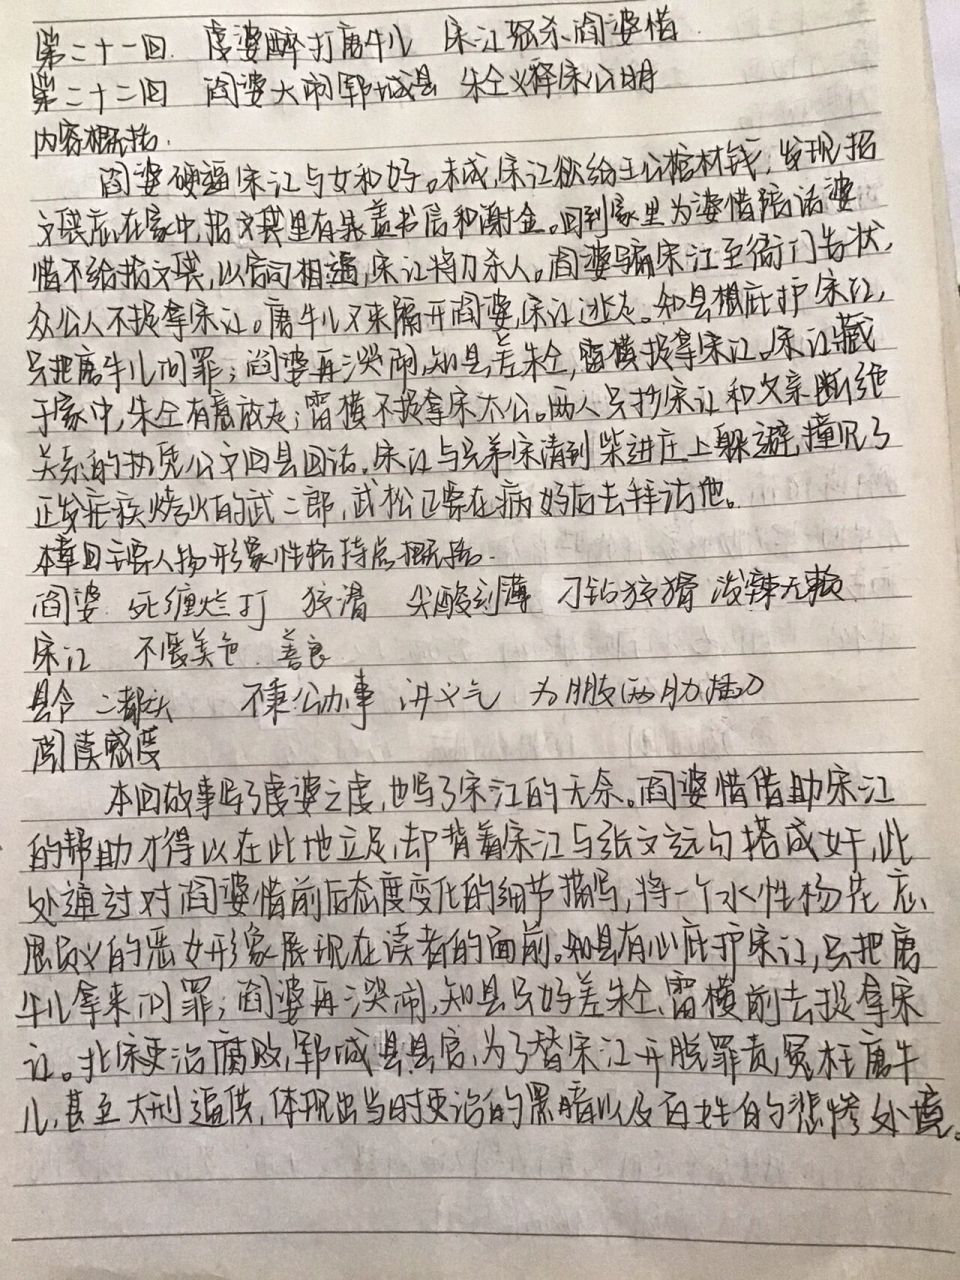 第二十一回 虔婆醉打唐牛儿 宋江怒杀阎婆惜
第二十二回 阎婆大闹郓城县 朱仝义释宋公明
内容概括:
阎婆硬逼宋江与女和好。未成,宋江欲给王公棺材钱,发现招
文袋忘在家中,招文袋里有晁盖书信和谢金。回到家里为婆惜陪话婆
惜不给招文袋,以言词相逼,宋江将刀杀人。阎婆骗宋江至衙门告状,
众公人不捉拿宋江。唐牛儿又来隔开阎婆,宋江逃走。知县想庇护宋江,
只把唐牛儿问罪;阎婆再三哭闹,知县差朱仝,雷横捉拿宋江。宋江藏
于家中,朱仝有意放走;雷横不捉拿宋太公。两人只抄宋江和父亲断绝
关系的执凭公文回县回话。宋江与兄弟宋清到柴进庄上躲避,撞见了
正发疟疾烤火的武二郎,武松正要在病好后去拜访他。
本章回主要人物形象性格特点概括:
阎婆 死缠烂打 狡滑 尖酸刻薄 刁钻狡猾 泼辣无赖
宋江 不爱美色 善良
县令 二都头 不秉公办事 讲义气 为朋友两肋插刀
阅读感受
本回故事写了虔婆之虔,也写了宋江的无奈。阎婆惜借助宋江
的帮助才得以在此地立足,却背着宋江与张文远勾搭成奸,此
处通过对阎婆惜前后态度变化的细节描写,将一个水性杨花忘
恩负义的恶女形象展现在读者的面前。知县有心庇护宋江,只把唐
牛儿拿来问罪;阎婆再三哭闹,知县只好差朱仝,雷横前去捉拿宋
江。北宋吏治腐败,郓城县县官,为了替宋江开脱罪责,冤枉唐牛
儿,甚至大刑逼供,体现出当时吏治的黑暗以及百姓的悲惨处境。